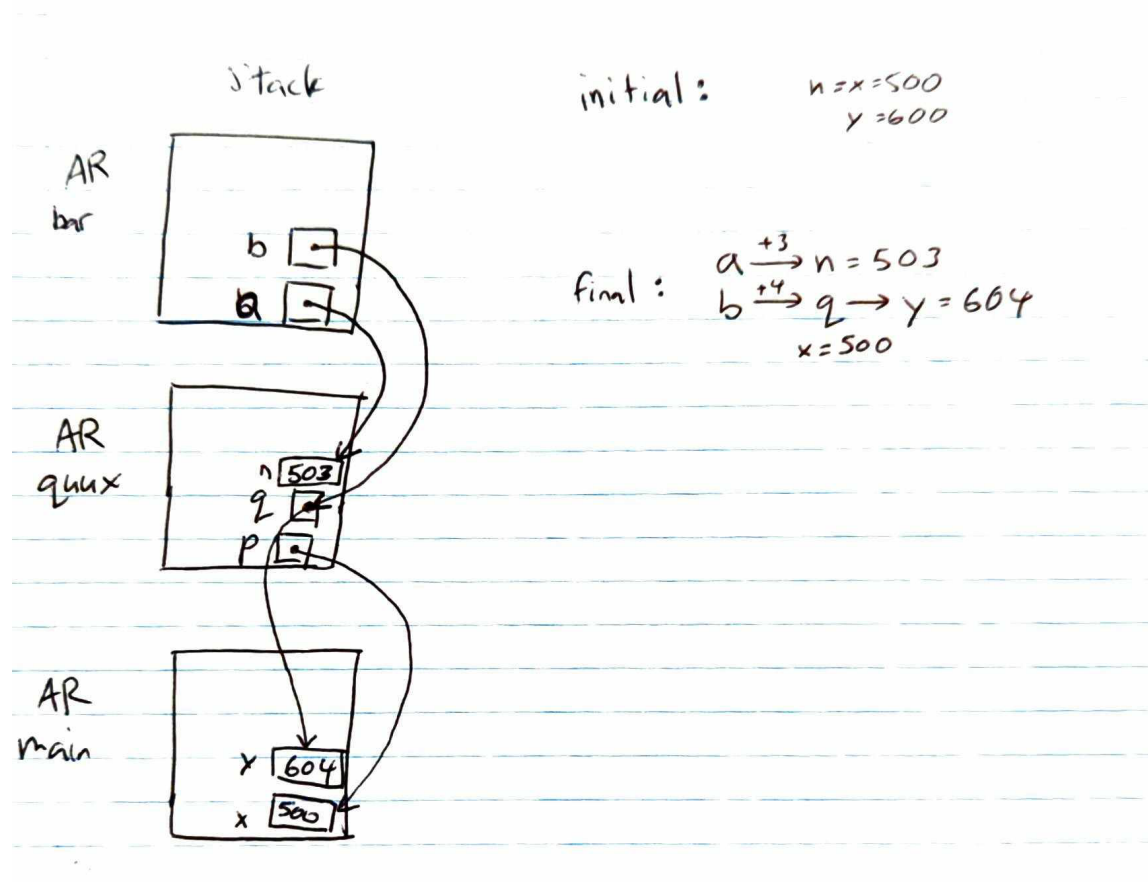 Stack
initial: n=x=500
y=600
AR
bar
b
a
final: a +3→ n = 503
b +4→ q → y = 604
x = 500
AR
quux
n 503
q
p
AR
main
y 604
x 500